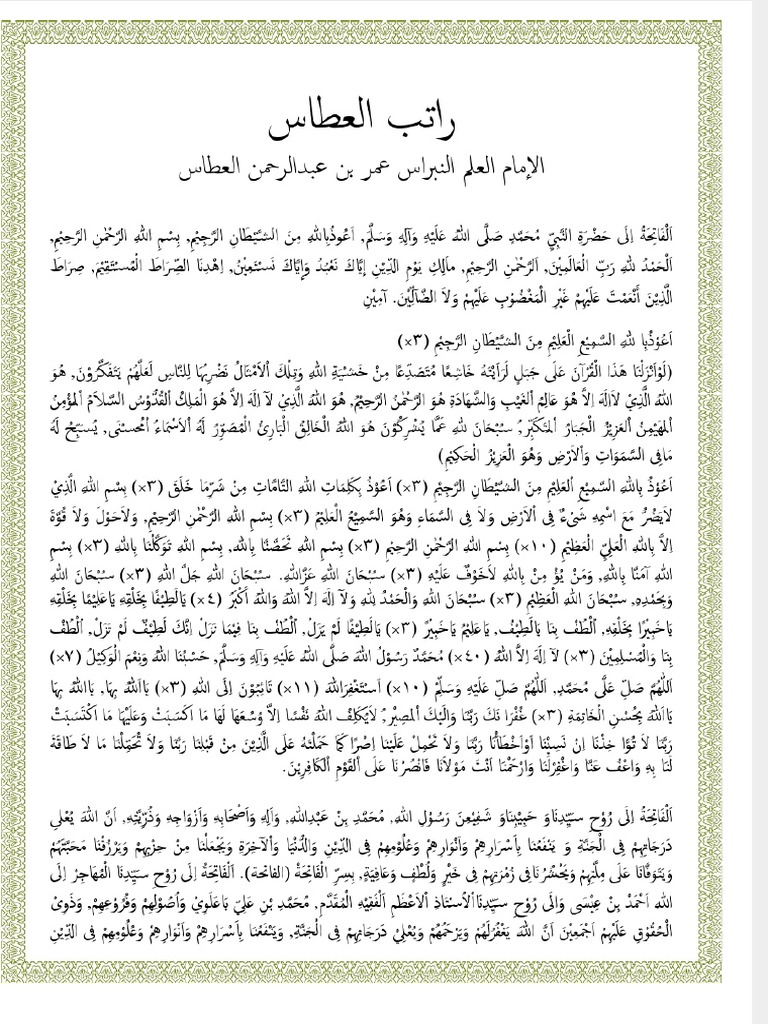 راتب العطاس
الإمام العلم النبراس عمر بن عبدالرحمن العطاس
اَلْفَاتِحَةُ إِلَى حَضْرَةِ النَّبِيِّ مُحَمَّدٍ صَلَّى اللهُ عَلَيْهِ وَآلِهِ وَسَلَّمَ, اَعُوذُبِاللهِ مِنَ الشَّيْطَانِ الرَّجِيْمِ, بِسْمِ اللهِ الرَّحْمٰنِ الرَّحِيْمِ,
اَلْحَمْدُ لِلهِ رَبِّ الْعَالَمِيْنَ, اَلرَّحْمٰنِ الرَّحِيْمِ, مٰلِكِ يَوْمِ الدِّيْنِ إِيَّاكَ نَعْبُدُ وَإِيَّاكَ نَسْتَعِيْنُ, اِهْدِنَا الصِّرَاطَ الْمُسْتَقِيْمَ, صِرَاطَ
الَّذِيْنَ أَنْعَمْتَ عَلَيْهِمْ غَيْرِ الْمَغْضُوْبِ عَلَيْهِمْ وَلَا الضَّآلِّيْنَ. آمِيْنِ
اَعُوْذُبِا للهِ السَّمِيْعِ الْعَلِيْمِ مِنَ الشَّيْطَانِ الرَّجِيْمِ (٣×)
(لَوْاَنْزَلْنَا هٰذَا الْقُرْآنَ عَلَى جَبَلٍ لَرَأَيْتَهُ خَاشِعًا مُتَصَدِّعًا مِنْ خَشْيَةِ اللهِ وَتِلْكَ اْلاَمْثَالُ نَضْرِبُهَا لِلنَّاسِ لَعَلَّهُمْ يَتَفَكَّرُوْنَ, هُوَ
اللهُ الَّذِيْ لاَاِلَهَ اِلاَّ هُوَ عَالِمُ الْغَيْبِ وَالشَّهَادَةِ هُوَ الرَّحْمٰنُ الرَّحِيْمُ, هُوَ اللهُ الَّذِيْ لاَ اِلَهَ اِلاَّ هُوَ الْمَلِكُ الْقُدُّوْسُ السَّلاَمُ اْلمُؤْمِنُ
اْلمُهَيْمِنُ اْلعَزِيْزُ الْجَبَّارُ اْلمُتَكَبِّرُ, سُبْحَانَ للهِ عَمَّا يُشْرِكُوْنَ هُوَ اللهُ الْخَالِقُ الْبَارِئُ الْمُصَوِّرُ لَهُ اْلاَسْمَاءُ اْلحُسْنَى, يُسَبِّحُ لَهُ
مَافِى السَّمَوَاتِ وَاْلاَرْضِ وَهُوَ الْعَزِيْزُ الْحَكِيْمُ)
اَعُوْذُ بِاللهِ السَّمِيْعِ اْلعَلِيْمِ مِنَ الشَّيْطَانِ الرَّجِيْمِ (٣×) اَعُوْذُ بِكَلِمَاتِ اللهِ التَّامَّاتِ مِنْ شَرِّمَا خَلَقَ (٣×) بِسْمِ اللهِ الَّذِيْ
لاَيَضُرُّ مَعَ اسْمِهِ شَيْءٌ فِى اْلاَرْضِ وَلاَ فِى السَّمَاءِ وَهُوَ السَّمِيْعُ الْعَلِيْمُ (٣×) بِسْمِ اللهِ الرَّحْمٰنِ الرَّحِيْمِ, وَلاَحَوْلَ وَلاَ قُوَّةَ
اِلاَّ بِاللهِ الْعَلِيِّ الْعَظِيْمِ (١٠×) بِسْمِ اللهِ الرَّحْمٰنِ الرَّحِيْمِ (٣×) بِسْمِ اللهِ تَحَصَّنَّا بِاللهِ, بِسْمِ اللهِ تَوَكَّلْنَا بِاللهِ (٣×) بِسْمِ
اللهِ آمَنَّا بِاللهِ, وَمَنْ يُؤْ مِنْ بِاللهِ لاَخَوْفٌ عَلَيْهِ (٣×) سُبْحَانَ اللهِ عَزَّاللهِ. سُبْحَانَ اللهِ جَلَّ اللهِ (٣×) سُبْحَانَ اللهِ
وَبِحَمْدِهِ, سُبْحَانَ اللهِ الْعَظِيْمِ (٣×) سُبْحَانَ اللهِ وَالْحَمْدُ لِلهِ وَلاَ اِلَهَ اِلاَّ اللهُ وَاللهُ اَكْبَرُ (٤×) يَالَطِيْفًا بِخَلْقِهِ يَاعَلِيْمًا بِخَلْقِهِ
يَاخَبِيْرًا بِخَلْقِهِ, اُلْطُفْ بِنَا يَالَطِيْفُ, يَاعَلِيْمُ يَاخَبِيْرُ (٣×) يَالَطِيْفًا لَمْ يَزَلْ, اُلْطُفْ بِنَا فِيْمَا نَزَلْ اِنَّكَ لَطِيْفٌ لَمْ تَزَلْ, اُلْطُفْ
بِنَا وَالْمُسْلِمِيْنَ (٣×) لاَ اِلَهَ اِلاَّ اللهُ (٤٠×) مُحَمَّدٌ رَسُوْلُ اللهِ صَلَّى اللهُ عَلَيْهِ وَآلِهِ وَسَلَّمَ, حَسْبُنَا اللهُ وَنِعْمَ الْوَكِيْلُ (٧×)
اَللَّهُمَّ صَلِّ عَلَى مُحَمَّدٍ, اَللَّهُمَّ صَلِّ عَلَيْهِ وَسَلِّمْ (١٠×) اَسْتَغْفِرُاللهَ (١١×) تَائِبُوْنَ اِلَى اللهِ (٣×) يَااَللهُ بِهَا, يَااَللهُ بِهَا
يَااَللهُ بِحُسْنِ الْخَاتِمَةِ (٣×) غُفْرَا نَكَ رَبَّنَا وَاِلَيْكَ اْلمَصِيْرُ, لاَيُكَلِّفُ اللهُ نَفْسًا اِلاَّ وُسْعَهَا لَهَا مَا اكْسَبَتْ وَعَلَيْهَا مَا اكْتَسَبَتْ
رَبَّنَا لاَ تُؤَا خِذْنَا اِنْ نَسِيْنَا اَوْاَخْطَأْنَا رَبَّنَا وَلاَ تَحْمِلْ عَلَيْنَا اِصْرًا كَمَا حَمَلْتَهُ عَلَى الَّذِيْنَ مِنْ قَبْلِنَا رَبَّنَا وَلاَ تُحَمِّلْنَا مَا لاَ طَاقَةَ
لَنَا بِهِ وَاعْفُ عَنَّا وَاغْفِرْلَنَا وَارْحَمْنَا اَنْتَ مَوْلاَنَا فَانْصُرْنَا عَلَى الْقَوْمِ الْكَافِرِيْنَ.
اَلْفَاتِحَةُ إِلَى رُوْحِ سَيِّدِنَاوَ حَبِيْبِنَاوَ شَفِيْعِنَ رَسُوْلِ اللهِ, مُحَمَّدِ بِنْ عَبْدِاللهِ, وَآلِهِ وَاَصْحَابِهِ وَاَزْوَاجِهِ وَذُرِّيَّتِهِ, اَنَّ اللهَ يُعْلِي
دَرَجَاتِهِمْ فِى الْجَنَّةِ وَ يَنْفَعُنَا بِأَسْرَارِهِمْ وَاَنْوَارِهِمْ وَعُلُوْمِهِمْ فِى الدِّيْنِ وَالدُّنْيَا وَاْلآخِرَةِ وَيَجْعَلُنَا مِنْ حِزْبِهِمْ وَيَرْزُقُنَا مَحَبَّتَهُمْ
وَيَتَوَفَّانَا عَلَى مِلَّتِهِمْ وَيَحْشُرُنَافِى زُمْرَتِهِمْ فِى خَيْرٍ وَلُطْفٍ وَعَافِيَةٍ, بِسِرِّ الْفَاتِحَةْ (الفاتحة). اَلْفَاتِحَةُ إِلَى رُوْحِ سَيِّدِنَا الْمُهَاجِرْ إِلَى
اللهِ اَحْمَدْ بِنْ عِيْسَى وَالَى رُوْحِ سَيِّدِنَا اْلاُسْتَاذِ اْلاَعْظَمِ اَلْفَقِيْهِ الْمُقَدَّمِ, مُحَمَّدِ بْنِ عَلِيّ بَاعَلَوِيْ وَاُصُوْلِهِمْ وَفُرُوْعِهِمْ, وَذَوِىْ
الْحُقُوْقِ عَلَيْهِمْ اَجْمَعِيْنَ اَنَّ اللهَ يَغْفِرُلَهُمْ وَيَرْحَمُهُمْ وَيُعْلِيْ دَرَجَاتِهِمْ فِى الْجَنَّةِ, وَيَنْفَعُنَا بِأَسْرَارِهِمْ وَاَنْوَارِهِمْ وَعُلُوْمِهِمْ فِى الدِّيْنِ